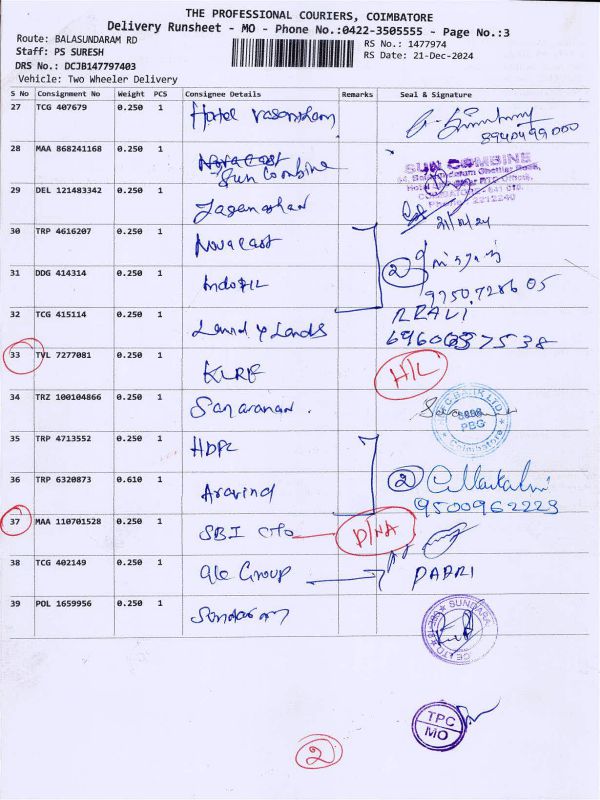 THE PROFESSIONAL COURIERS, COIMBATORE
Delivery Runsheet - MO - Phone No.:0422-3505555 - Page No.:3
Route: BALASUNDARAM RD
RS No.: 1477974
Staff: PS SURESH
RS Date: 21-Dec-2024
DRS No.: DCJB147797403
Vehicle: Two Wheeler Delivery
S No Consignment No Weight PCS Consignee Details Remarks Seal & Signature
27 TCG 407679 0.250 1 Hotel
8940499000
28 MAA 868241168 0.250 1 Nova Cast
Sun Combine
SUN COMBINE
Phone: 2212240
29 DEL 121483342 0.250 1
21/12/24
30 TRP 4616207 0.250 1 Novacast
31 DDG 414314 0.250 1 Indofil
2
9750728605
32 TCG 415114 0.250 1
R RAVI
33 TVL 7277081 0.250 1 KLRF
H/L
34 TRZ 100104866 0.250 1 Saravanan
BANK LTD
PBG
Coimbatore
35 TRP 4713552 0.250 1 HDFC
36 TRP 6320873 0.610 1 Aravind
2
9500962223
37 MAA 110701528 0.250 1 SBI
D/NA
38 TCG 402149 0.250 1 Group
39 POL 1659956 0.250 1 Sundaram
SUNDARA
TPC
MO
2